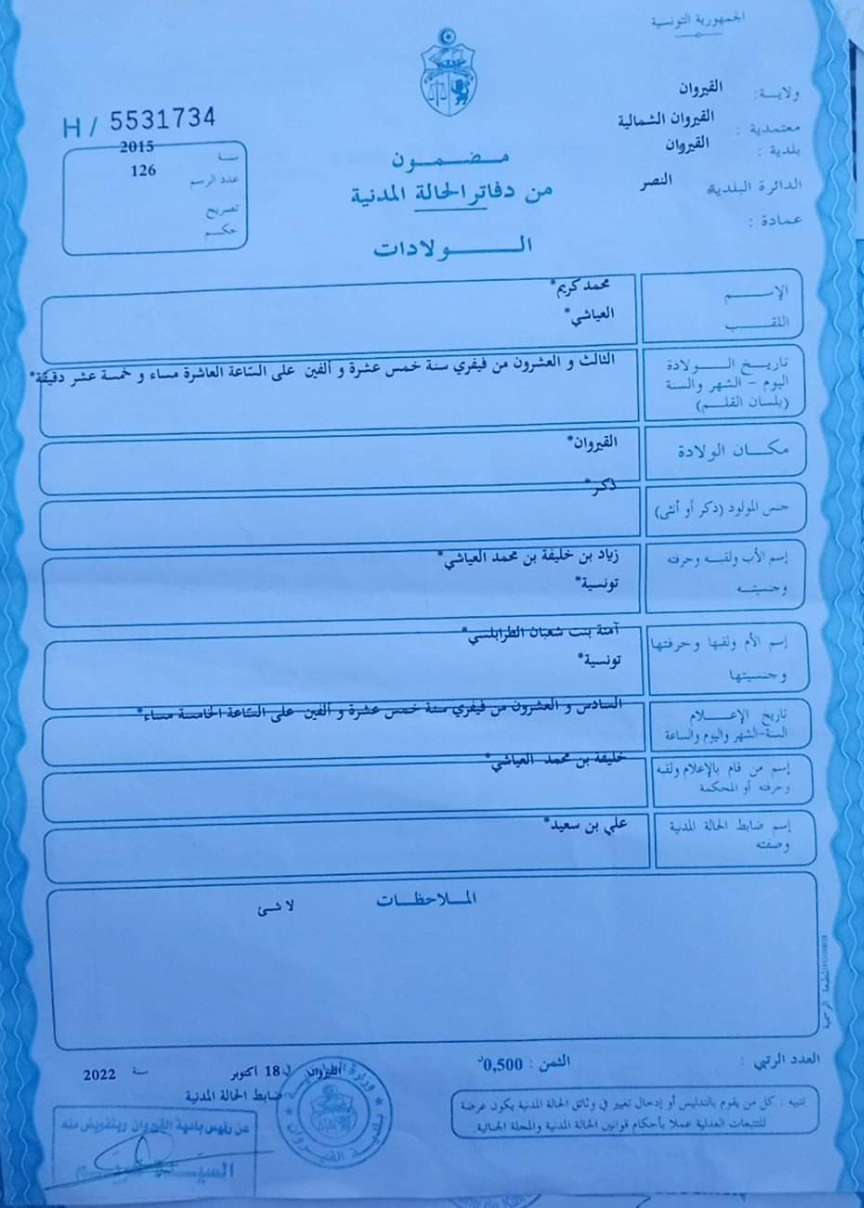 الجمهورية التونسية
ولاية: القيروان
معتمدية : القيروان الشمالية
بلدية : القيروان
الدائرة البلدية النصر
عمادة :
H / 5531734
سنة 2015
عدد الرسم 126
تصريح
حكم
مضمون
من دفاتر الحالة المدنية
الولادات
الإسم محمد كريم*
اللقب العياشي*
تاريخ الولادة الثالث و العشرون من فيفري سنة خمس عشرة و ألفين على الساعة العاشرة مساء و خمسة عشر دقيقة*
اليوم - الشهر والسنة
(بلسان القلم)
مكان الولادة القيروان*
جنس المولود (ذكر أو أنثى) ذكر*
إسم الأب ولقبه وحرفته زياد بن خليفة بن محمد العياشي*
وجنسيته تونسية*
إسم الأم ولقبها وحرفتها آمنة بنت شعبان الطرابلسي*
وجنسيتها تونسية*
تاريخ الإعلام السادس و العشرون من فيفري سنة خمس عشرة و ألفين على الساعة الخامسة مساء*
السنة-الشهر واليوم والساعة
إسم من قام بالإعلام ولقبه خليفة بن محمد العياشي*
وحرفته أو المحكمة
إسم ضابط الحالة المدنية علي بن سعيد*
وصفته
الملاحظات
لا شئ
العدد الرتبي :
الثمن : 0,500د
القيروان في 18 أكتوبر سنة 2022
ضابط الحالة المدنية
تنبيه : كل من يقوم بالتدليس أو إدخال تغيير في وثائق الحالة المدنية يكون عرضة
للتتبعات العدلية عملا بأحكام قوانين الحالة المدنية والمجلة الجنائية
عن رئيس بلدية القيروان وبتفويض منه
بلدية القيروان